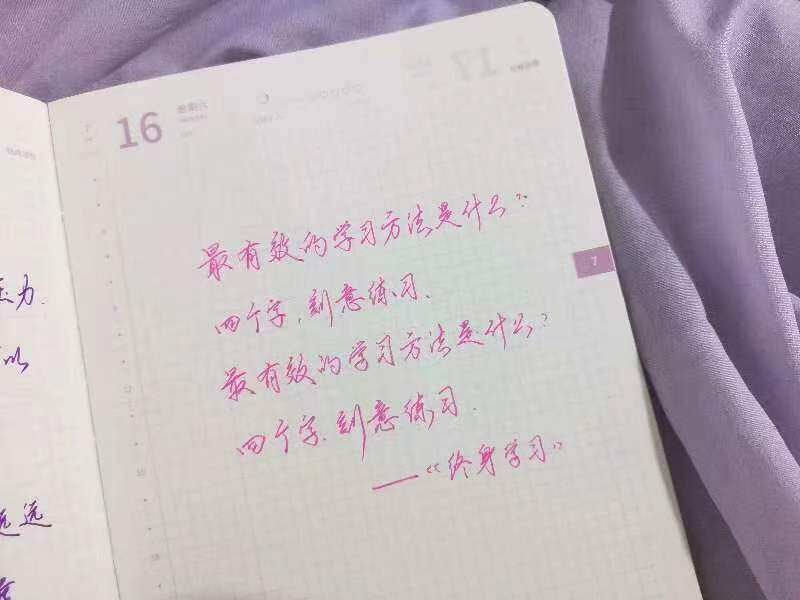 16
17
最有效的学习方法是什么?
7
四个字,刻意练习.
最有效的学习方法是什么?
四个字.刻意练习.
——《终身学习》
力.
以
远